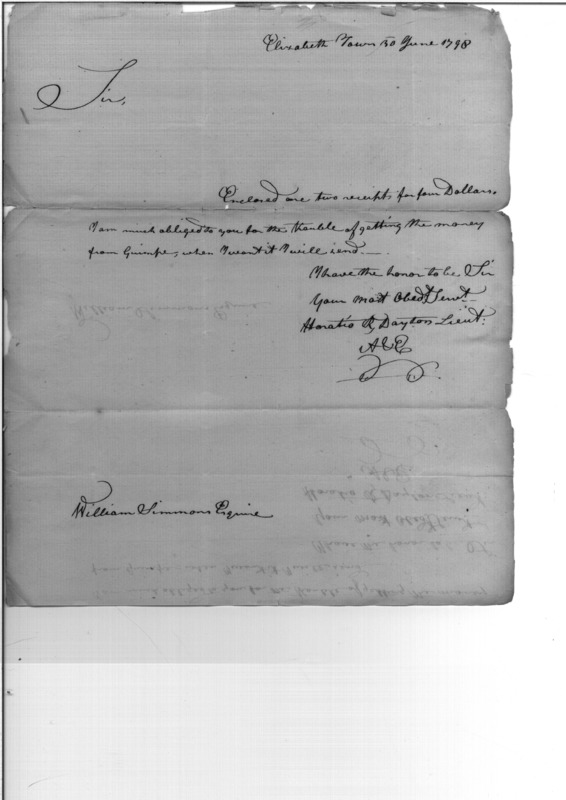 Elizabeth Town 30 June 1798
Sir,
Enclosed are two receipts for four Dollars.
I am much obliged to you for the trouble of getting the money
from Guimpe, when I want it I will send —.
I have the honor to be Sir
Your most Obedt Servt
Horatio R, Dayton Lieut.
A&E
William Simmons Esquire